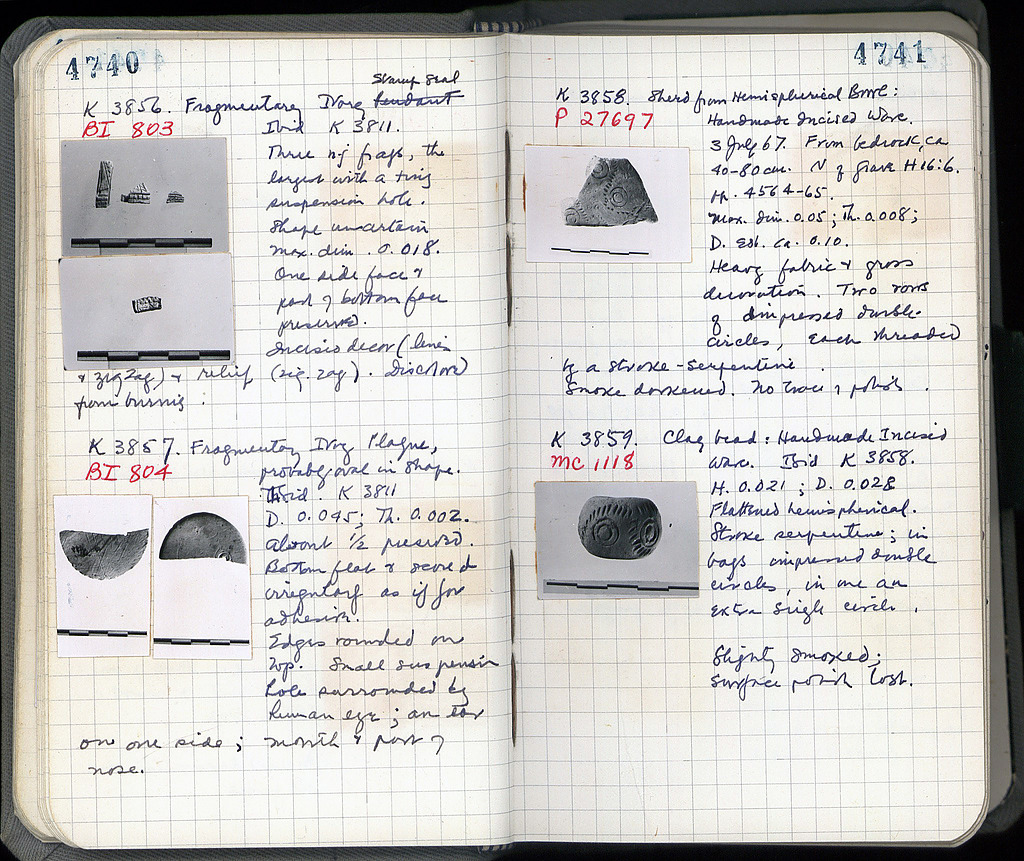 4740
Stamp Seal
K 3856. Fragmentary Ivory Pendant
BI 803
Ibid K 3811.
Three nj frags, the
largest with a tiny
suspension hole.
Shape uncertain
max. dim. 0.018.
One side face &
part of bottom face
preserved.
Incised decor (lines
& zigzag) & relief (zig-zag). Discolored
from burning.
K 3857. Fragmentary Ivory Plaque,
BI 804
probably oval in shape.
Ibid. K 3811
D. 0.045; Th. 0.002.
Almost 1/2 preserved.
Bottom flat & scored
irregularly as if for
adhesion.
Edges rounded on
top. Small suspension
hole surrounded by
human eye; an ear
on one side; mouth & part of
nose.
4741
K 3858. Sherd from Hemispherical Bowl:
P 27697
Handmade Incised Ware.
3 July 67. From bedrock, ca
40-80 cm. N of grave H 16:6.
pp. 4564-65.
Max. dim. 0.05; Th. 0.008;
D. est. ca. 0.10.
Heavy fabric & gross
decoration. Two rows
of impressed double-
circles, each threaded
by a stroke-serpentine.
Smoke darkened. No trace of polish.
K 3859. Clay bead: Handmade Incised
MC 1118
Ware. Ibid K 3858.
H. 0.021; D. 0.028
Flattened hemispherical.
Stroke serpentine; in
bays impressed double
circles, in one an
extra single circle.
Slightly smoked;
surface polish lost.